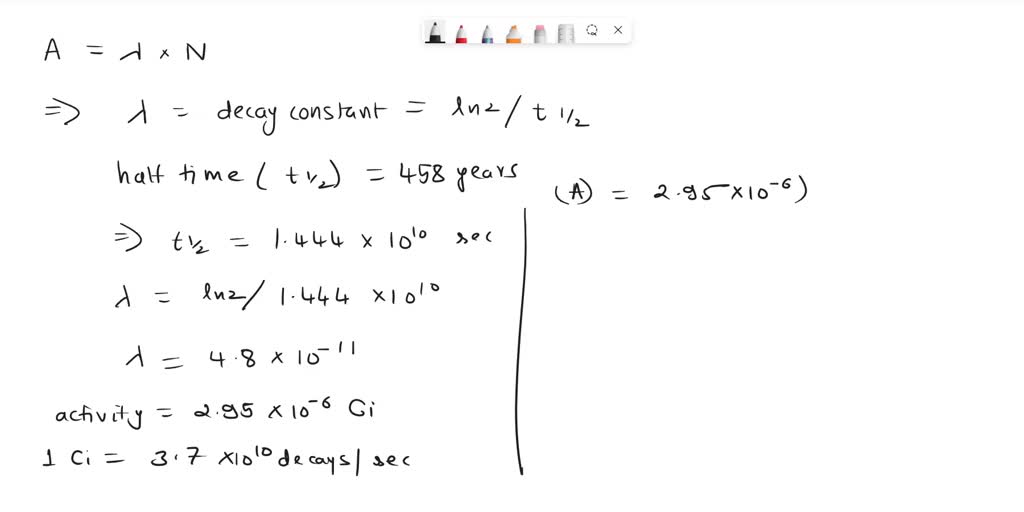 A = λ × N
=> λ = decay constant = ln2/ t 1/2
half time ( t 1/2) = 458 years
=> t 1/2 = 1.444 × 10¹⁰ sec
λ = ln2/ 1.444 ×10¹⁰
λ = 4.8 × 10⁻¹¹
activity = 2.95 ×10⁻⁶ Ci
1 Ci = 3.7 ×10¹⁰ decays/sec
(A) = 2.95×10⁻⁶)